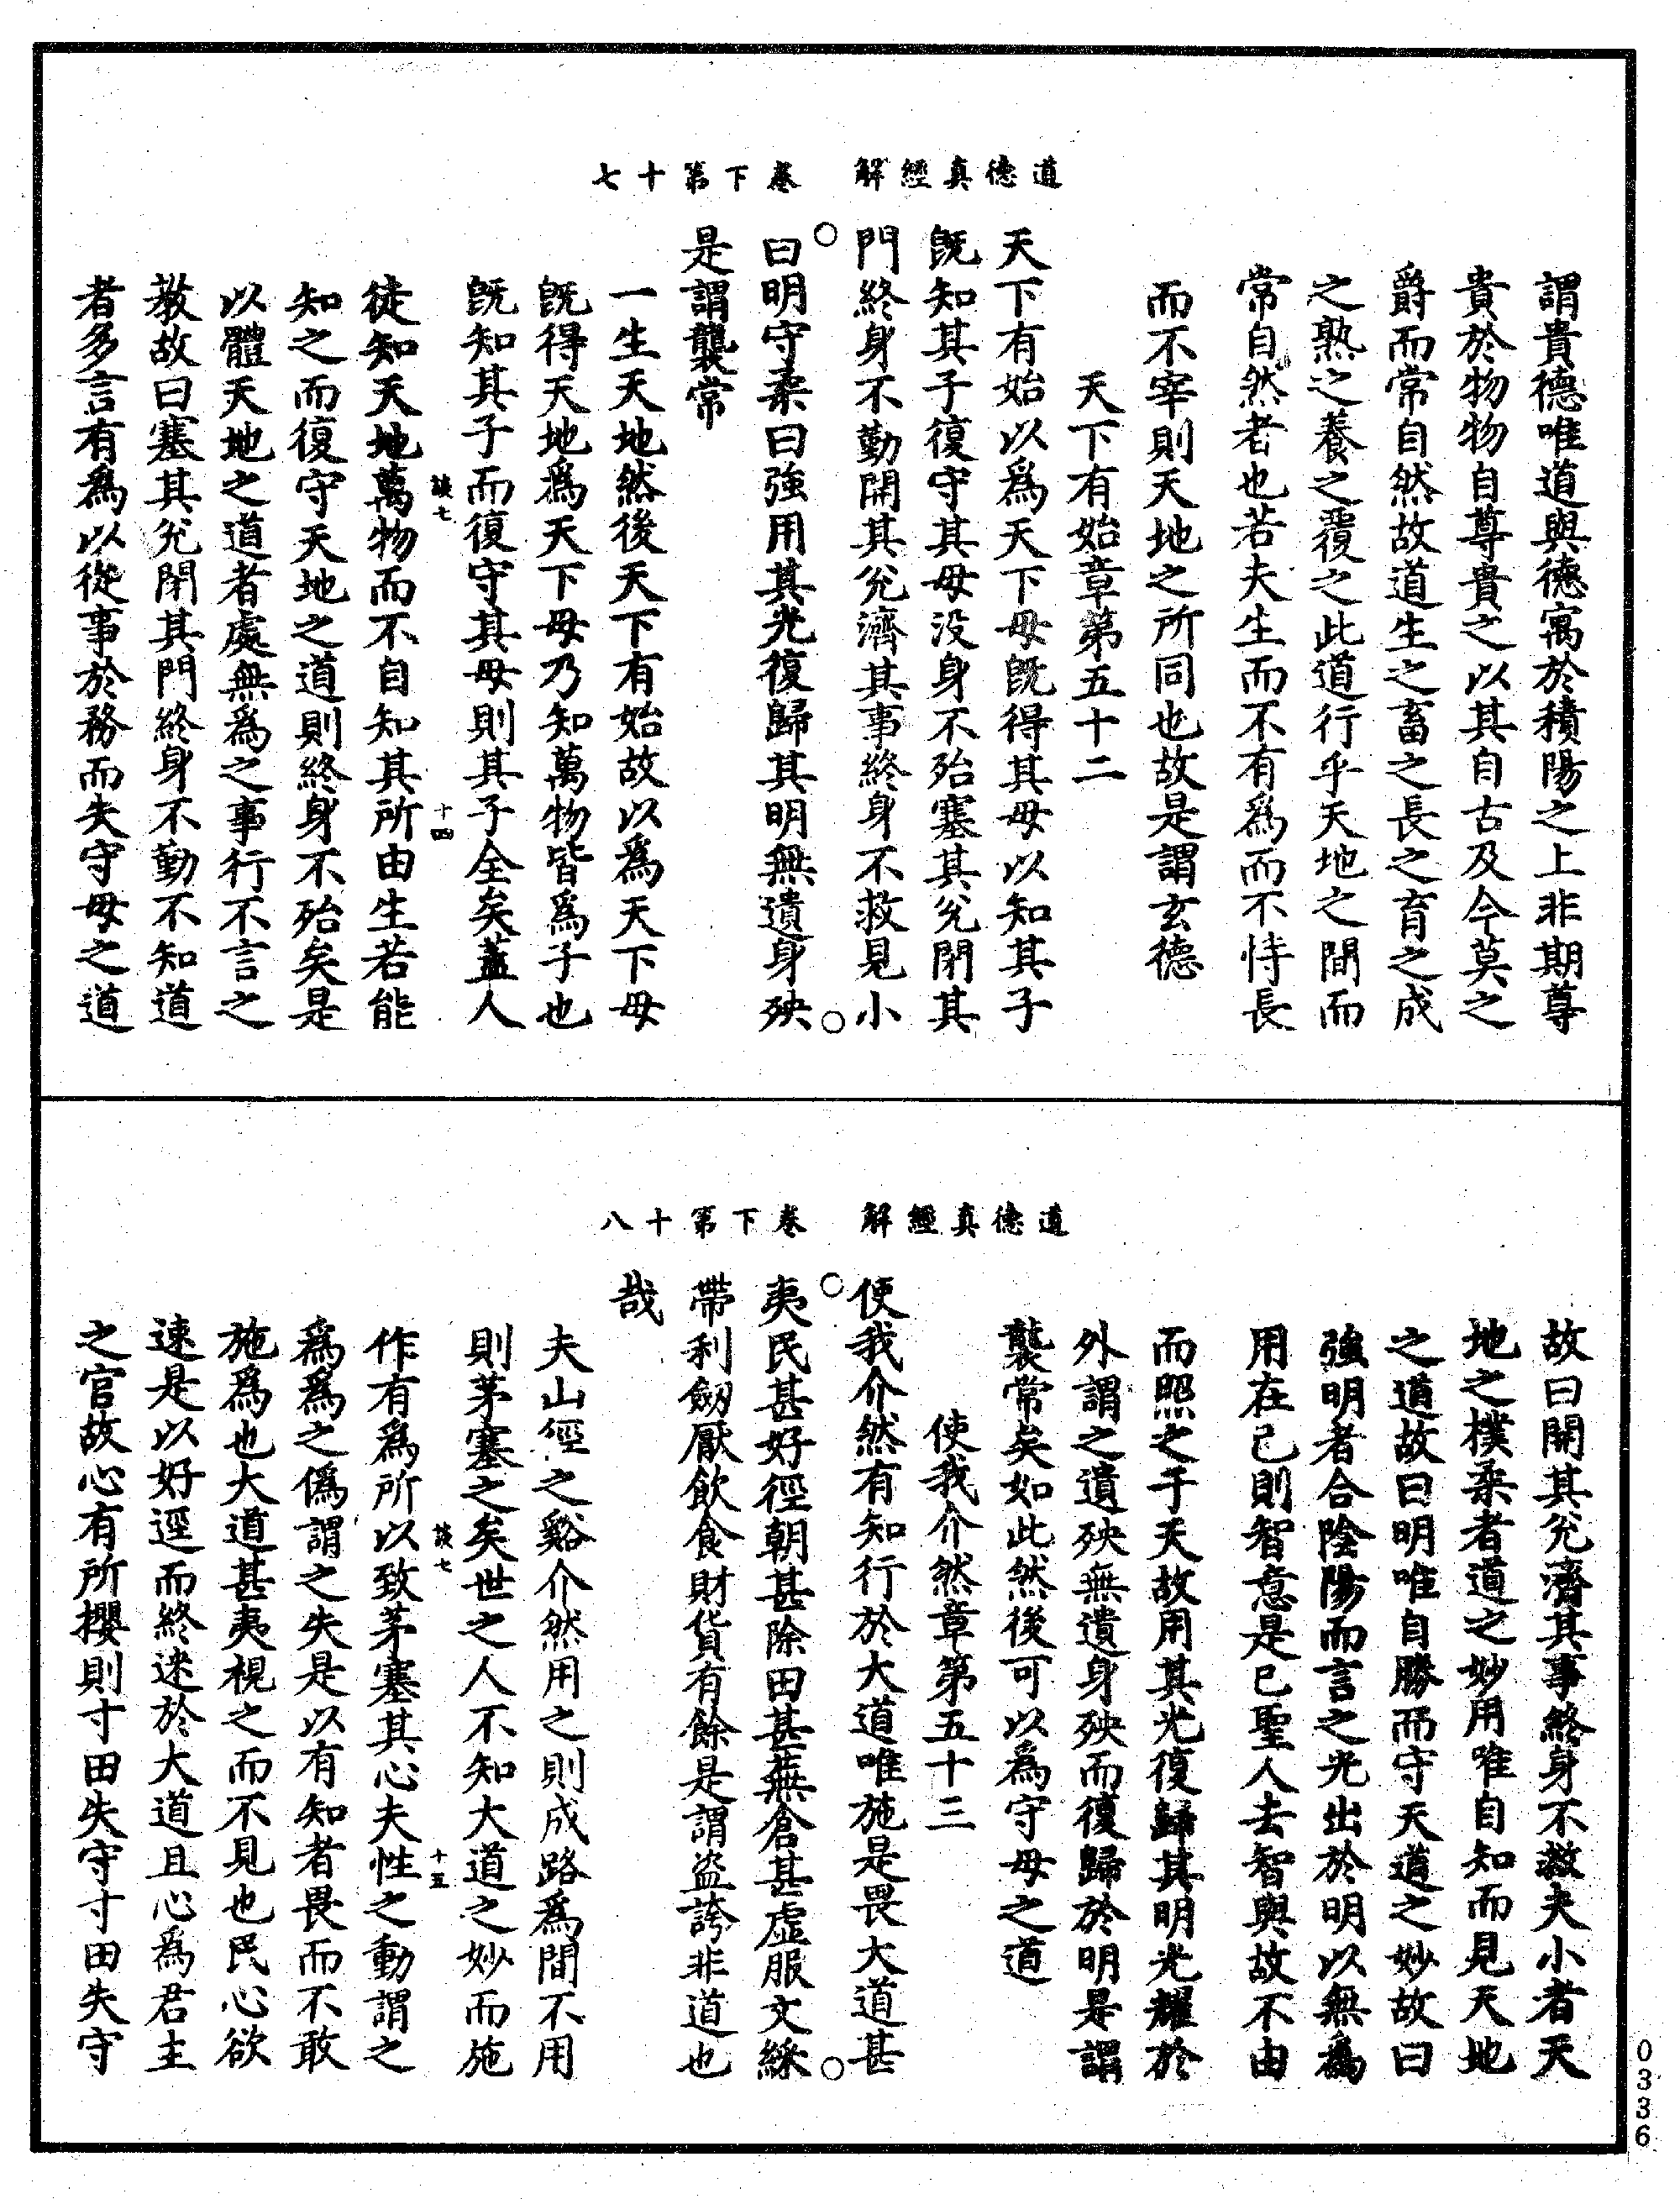 道德真經解　卷下第十七
謂貴德唯道與德寓於積陽之上非期尊
貴於物物自尊貴之以其自古及今莫之
爵而常自然故道生之畜之長之育之成
之熟之養之覆之此道行乎天地之間而
常自然者也若夫生而不有為而不恃長
而不宰則天地之所同也故是謂玄德
天下有始章第五十二
天下有始以為天下母既得其母以知其子
既知其子復守其母没身不殆塞其兊閉其
門終身不勤開其兊濟其事終身不救見小
曰明守柔曰強用其光復歸其明無遺身殃
是謂襲常
一生天地然後天下有始故以為天下母
既得天地為天下母乃知萬物皆為子也
既知其子而復守其母則其子全矣蓋人
談七　十四
徒知天地萬物而不自知其所由生若能
知之而復守天地之道則終身不殆矣是
以體天地之道者處無為之事行不言之
教故曰塞其兊閉其門終身不勤不知道
者多言有為以從事於務而失守母之道
道德真經解　卷下第十八
故曰開其兊濟其事終身不救夫小者天
地之樸柔者道之妙用唯自知而見天地
之道故曰明唯自勝而守天道之妙故曰
強明者合陰陽而言之光出於明以無為
用在己則智意是已聖人去智與故不由
而照之于天故用其光復歸其明光耀於
外謂之遺殃無遺身殃而復歸於明是謂
襲常矣如此然後可以為守母之道
使我介然章第五十三
使我介然有知行於大道唯施是畏大道甚
夷民甚好徑朝甚除田甚蕪倉甚虛服文綵
帶利劒厭飲食財貨有餘是謂盜誇非道也
哉
夫山徑之谿介然用之則成路為間不用
則茅塞之矣世之人不知大道之妙而施
談七　十五
作有為所以致茅塞其心夫性之動謂之
為為之偽謂之失是以有知者畏而不敢
施為也大道甚夷視之而不見也民心欲
速是以好逕而終迷於大道且心為君主
之官故心有所攖則寸田失守寸田失守
0336